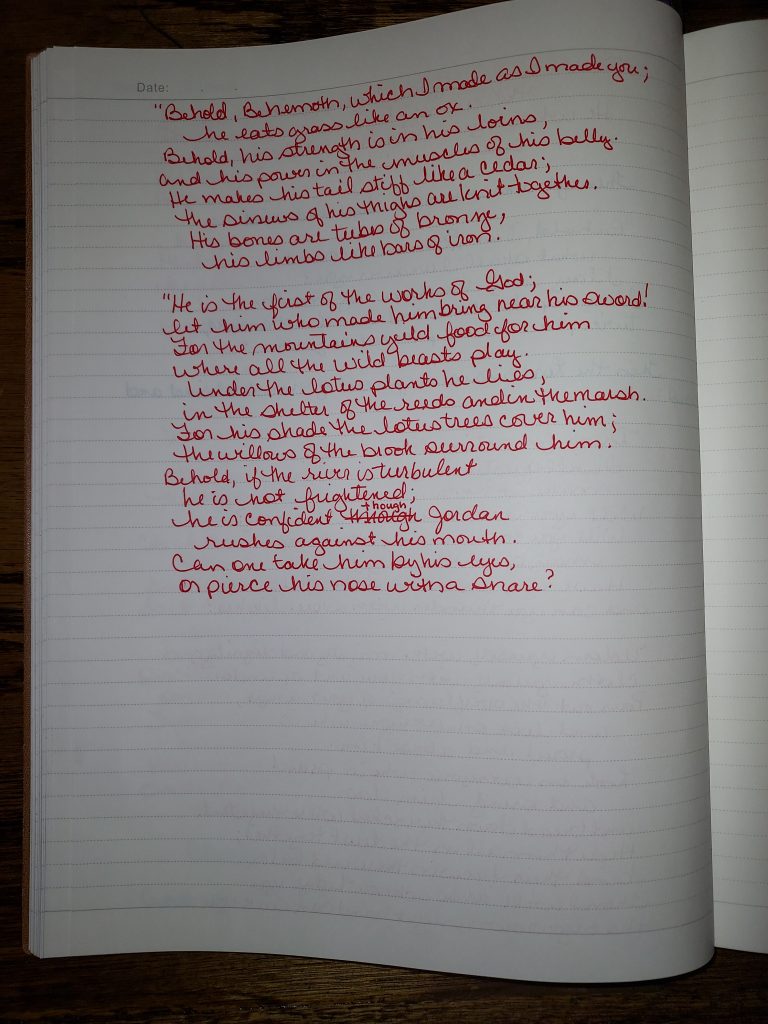 Date:
"Behold, Behemoth, which I made as I made you;
he eats grass like an ox.
Behold, his strength is in his loins,
and his power in the muscles of his belly.
He makes his tail stiff like a cedar;
the sinews of his thighs are knit together.
His bones are tubes of bronze,
his limbs like bars of iron.
"He is the first of the works of God;
let him who made him bring near his sword!
For the mountains yield food for him
where all the wild beasts play.
Under the lotus plants he lies,
in the shelter of the reeds and in the marsh.
For his shade the lotus trees cover him;
the willows of the brook surround him.
Behold, if the river is turbulent
he is not frightened;
he is confident though Jordan
rushes against his mouth.
Can one take him by his eyes,
or pierce his nose with a snare?